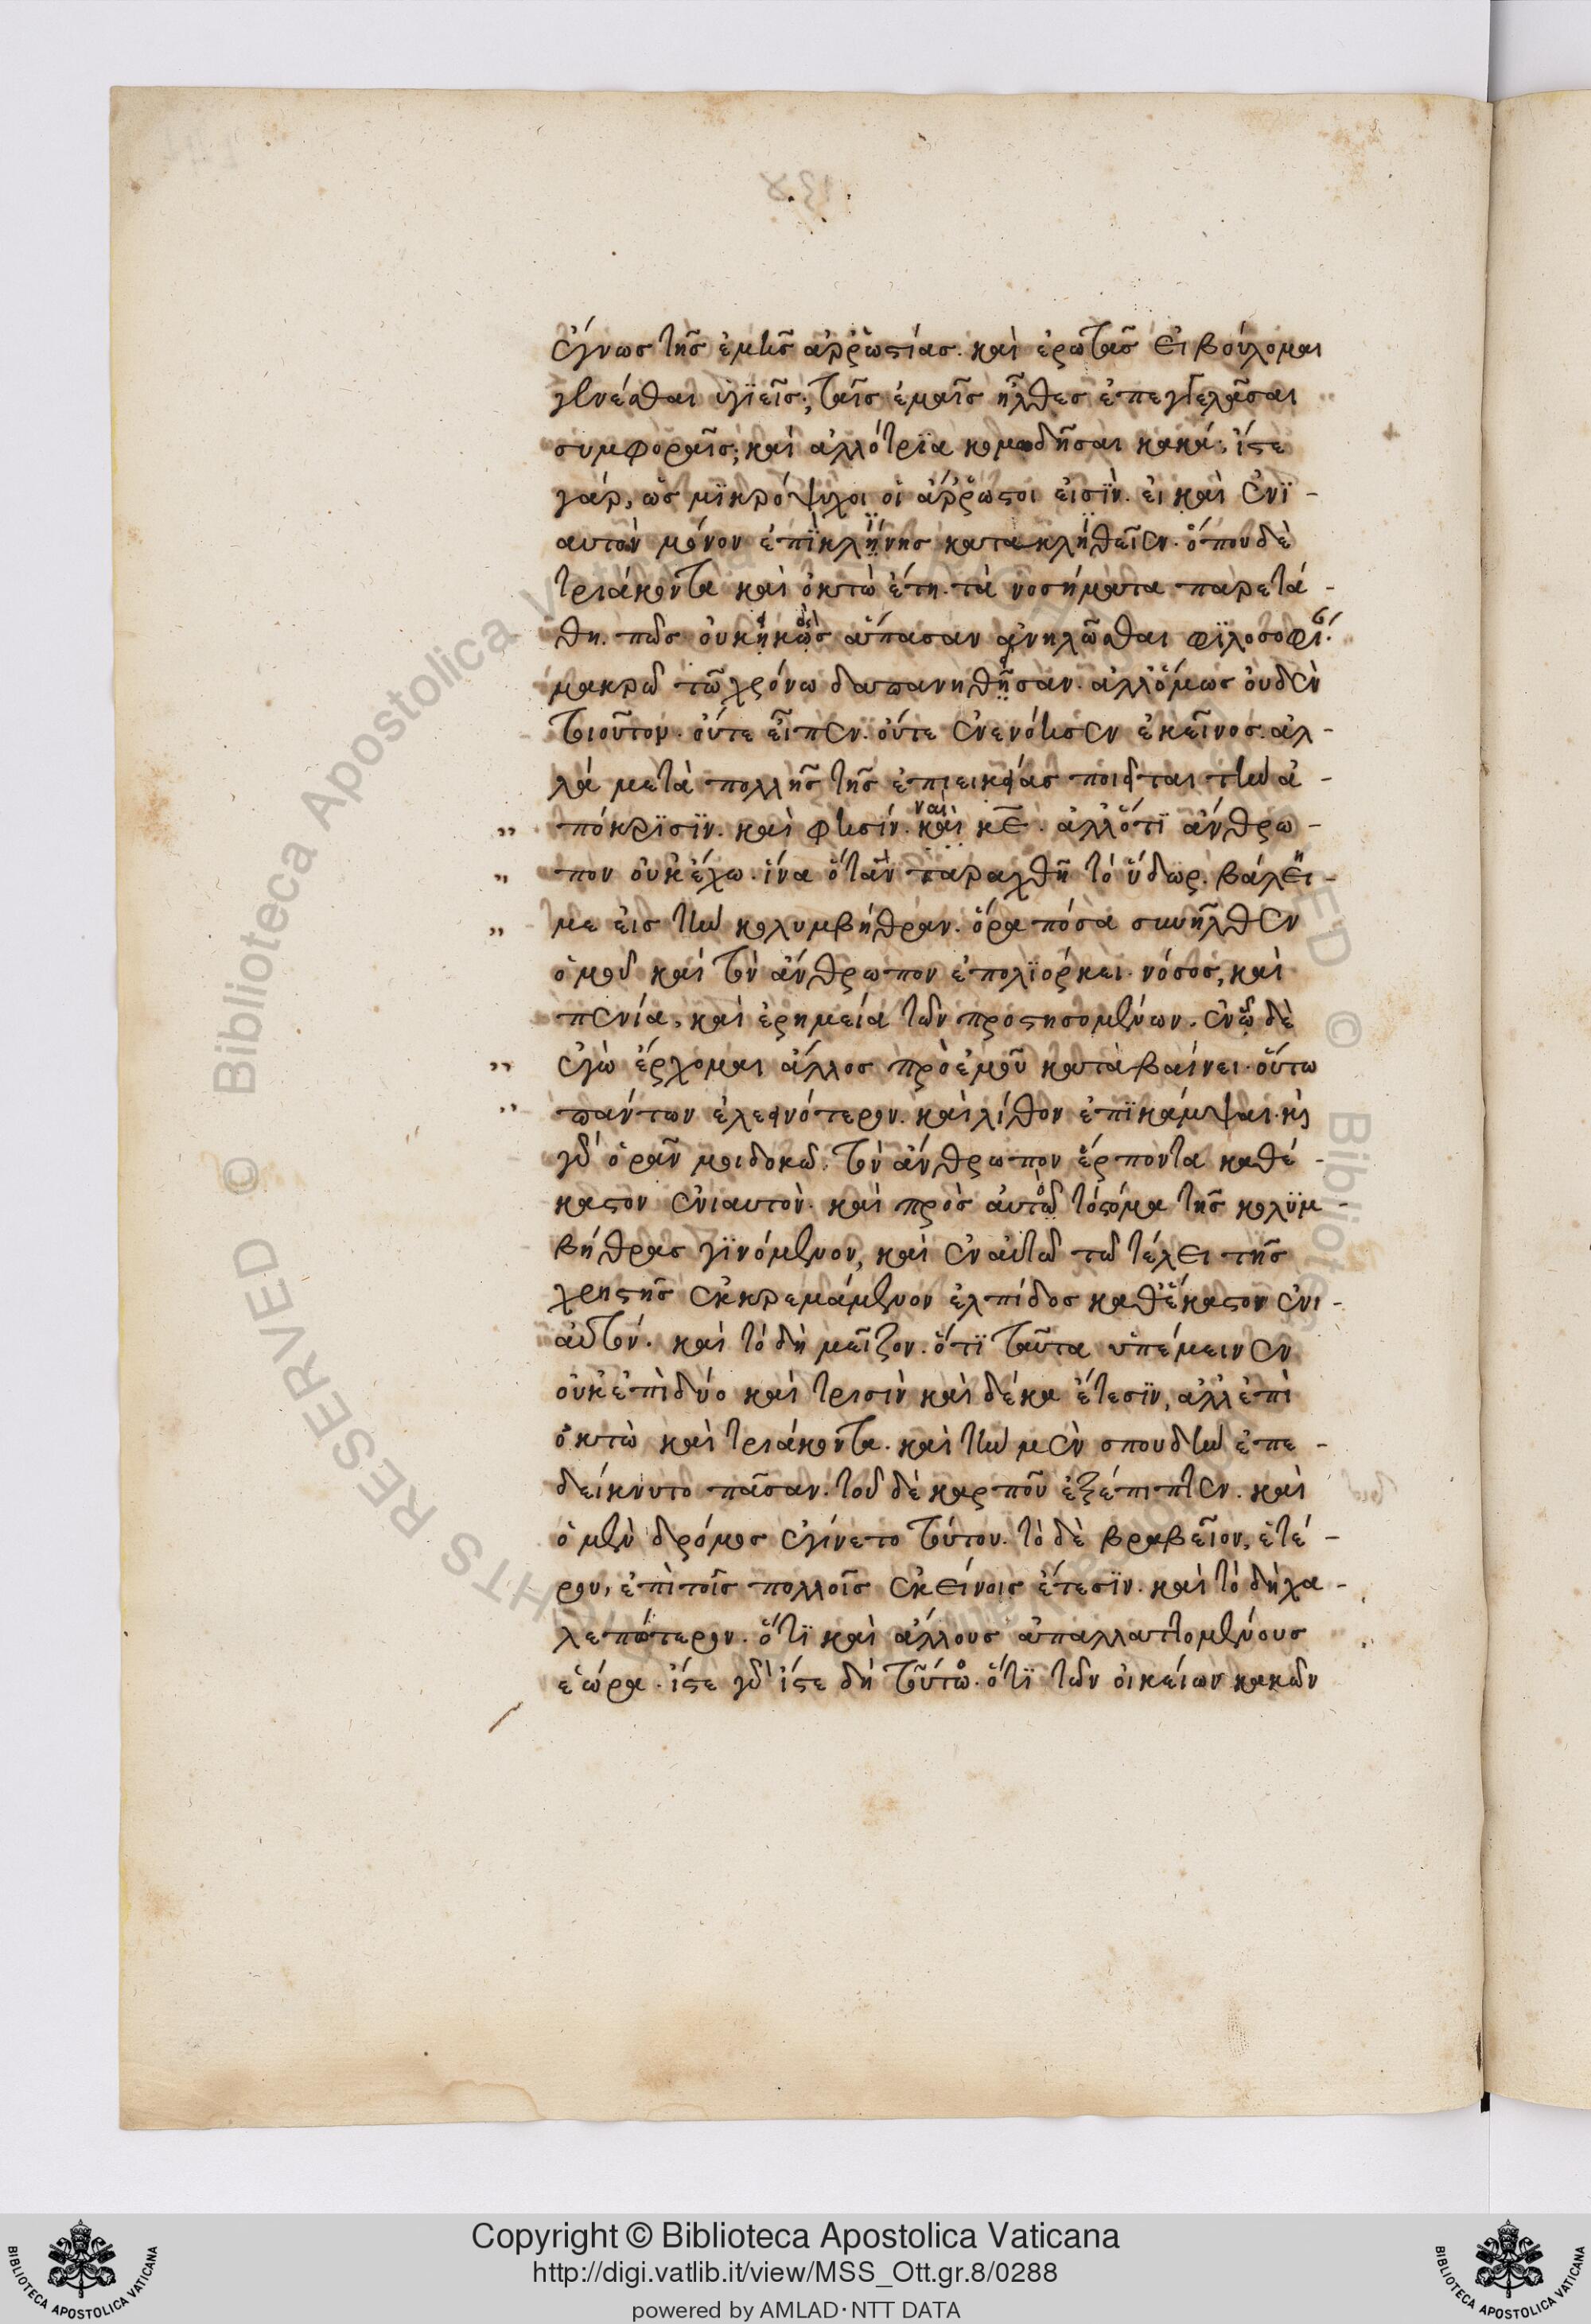 ἔγνως τῆς ἐμῆς ἀῤῥωστίας. καὶ ἐρωτᾶς εἰ βούλομαι
γενέσθαι ὑγϊεῖς; ταῖς ἐμαῖς ἦλθες ἐπεγγελᾶσαι
συμφοραῖς; καὶ ἀλλότρϊα κομωδῆσαι κακά; ἴστε
γὰρ, ὡς μϊκρόψυχοι οἱ ἄῤῥωστοι εἰσϊν. εἰ καὶ ἐνϊ-
αυτὸν μόνον ἐπϊ κλήνης κατακληθεῖεν. ὅπου δὲ
τριάκοντα καὶ ὀκτὼ ἔτη. τὰ νοσήματα παρετά-
θη. πῶς οὐκ εἰκὸς ἅπασαν ἀνηλῶσθαι φϊλοσοφί
μακρῶ τῶ χρόνω δαπανηθεῖσαν. ἀλλ ὅμως οὐδὲν
τοιοῦτον. οὔτε εἶπεν. οὔτε ἐνενόησεν ἐκεῖνος. ἀλ-
λὰ μετὰ πολλῆς τῆς ἐπιεικείας ποιεῖται τὴν ἀ-
πόκρϊσϊν. καὶ φησίν. ναὶ καὶ κε. ἀλλ ὅτϊ ἄνθρω-
πον οὐκ ἔχω. ἵνα ὅταν ταραχθῆ τὸ ὕδωρ. βάλει-
με εἰς τὴν κολυμβήθραν. ὅρα πόσα συνῆλθεν
ὁμοῦ καὶ τὸν ἄνθρωπον ἐπολϊόρκει. νόσος, καὶ
πενία, καὶ ἐρημεία τῶν προστησομένων. ἐν ὧ δὲ
ἐγὼ ἔρχομαι ἄλλος πρὸ ἐμοῦ καταβαίνει. οὕτω
πάντων ἐλεεινότερον. καὶ λίθον ἐπϊκάμψαι. κὶ
γὰρ ὁρᾶν μοι δοκῶ. τὸν ἄνθρωπον ἕρποντα καθέ-
καστον ἐνιαυτὸν. καὶ πρὸς αὐτῶ τὸ στόμα τῆς κολϋμ-
βήθρας γϊνόμενον, καὶ ἐν αὐτῶ τῶ τέλει τῆς
χρηστῆς ἐκκρεμάμενον ἐλπίδος καθ ἕκαστον ἐνι-
αυτόν. καὶ τὸ δὴ μεῖζον. ὅτϊ ταῦτα ὑπέμεινεν
οὐκ ἐπὶ δύο καὶ τρισὶν καὶ δέκα ἔτεσϊν, ἀλλ ἐπὶ
ὀκτὼ καὶ τριάκοντα. καὶ τὴν μὲν σπουδὴν ἐπε-
δείκνυτο πᾶσαν. τοῦ δὲ καρποῦ ἐξέπιπτεν. καὶ
ὁ μὲν δρόμος ἐγίνετο τούτου. τὸ δὲ βραβεῖον, ἑτέ-
ρου, ἐπὶ τοῖς πολλοῖς ἐκείνοις ἔτεσϊν. καὶ τὸ δὴ χα-
λεπώτερον. ὅτϊ καὶ ἄλλους ἀπαλλαττομένους
ἑώρα. ἴστε γὰρ ἴστε δὴ τοῦτο. ὅτϊ τῶν οἰκείων κακῶν
Copyright © Biblioteca Apostolica Vaticana
http://digi.vatlib.it/view/MSS_Ott.gr.8/0288
powered by AMLAD·NTT DATA